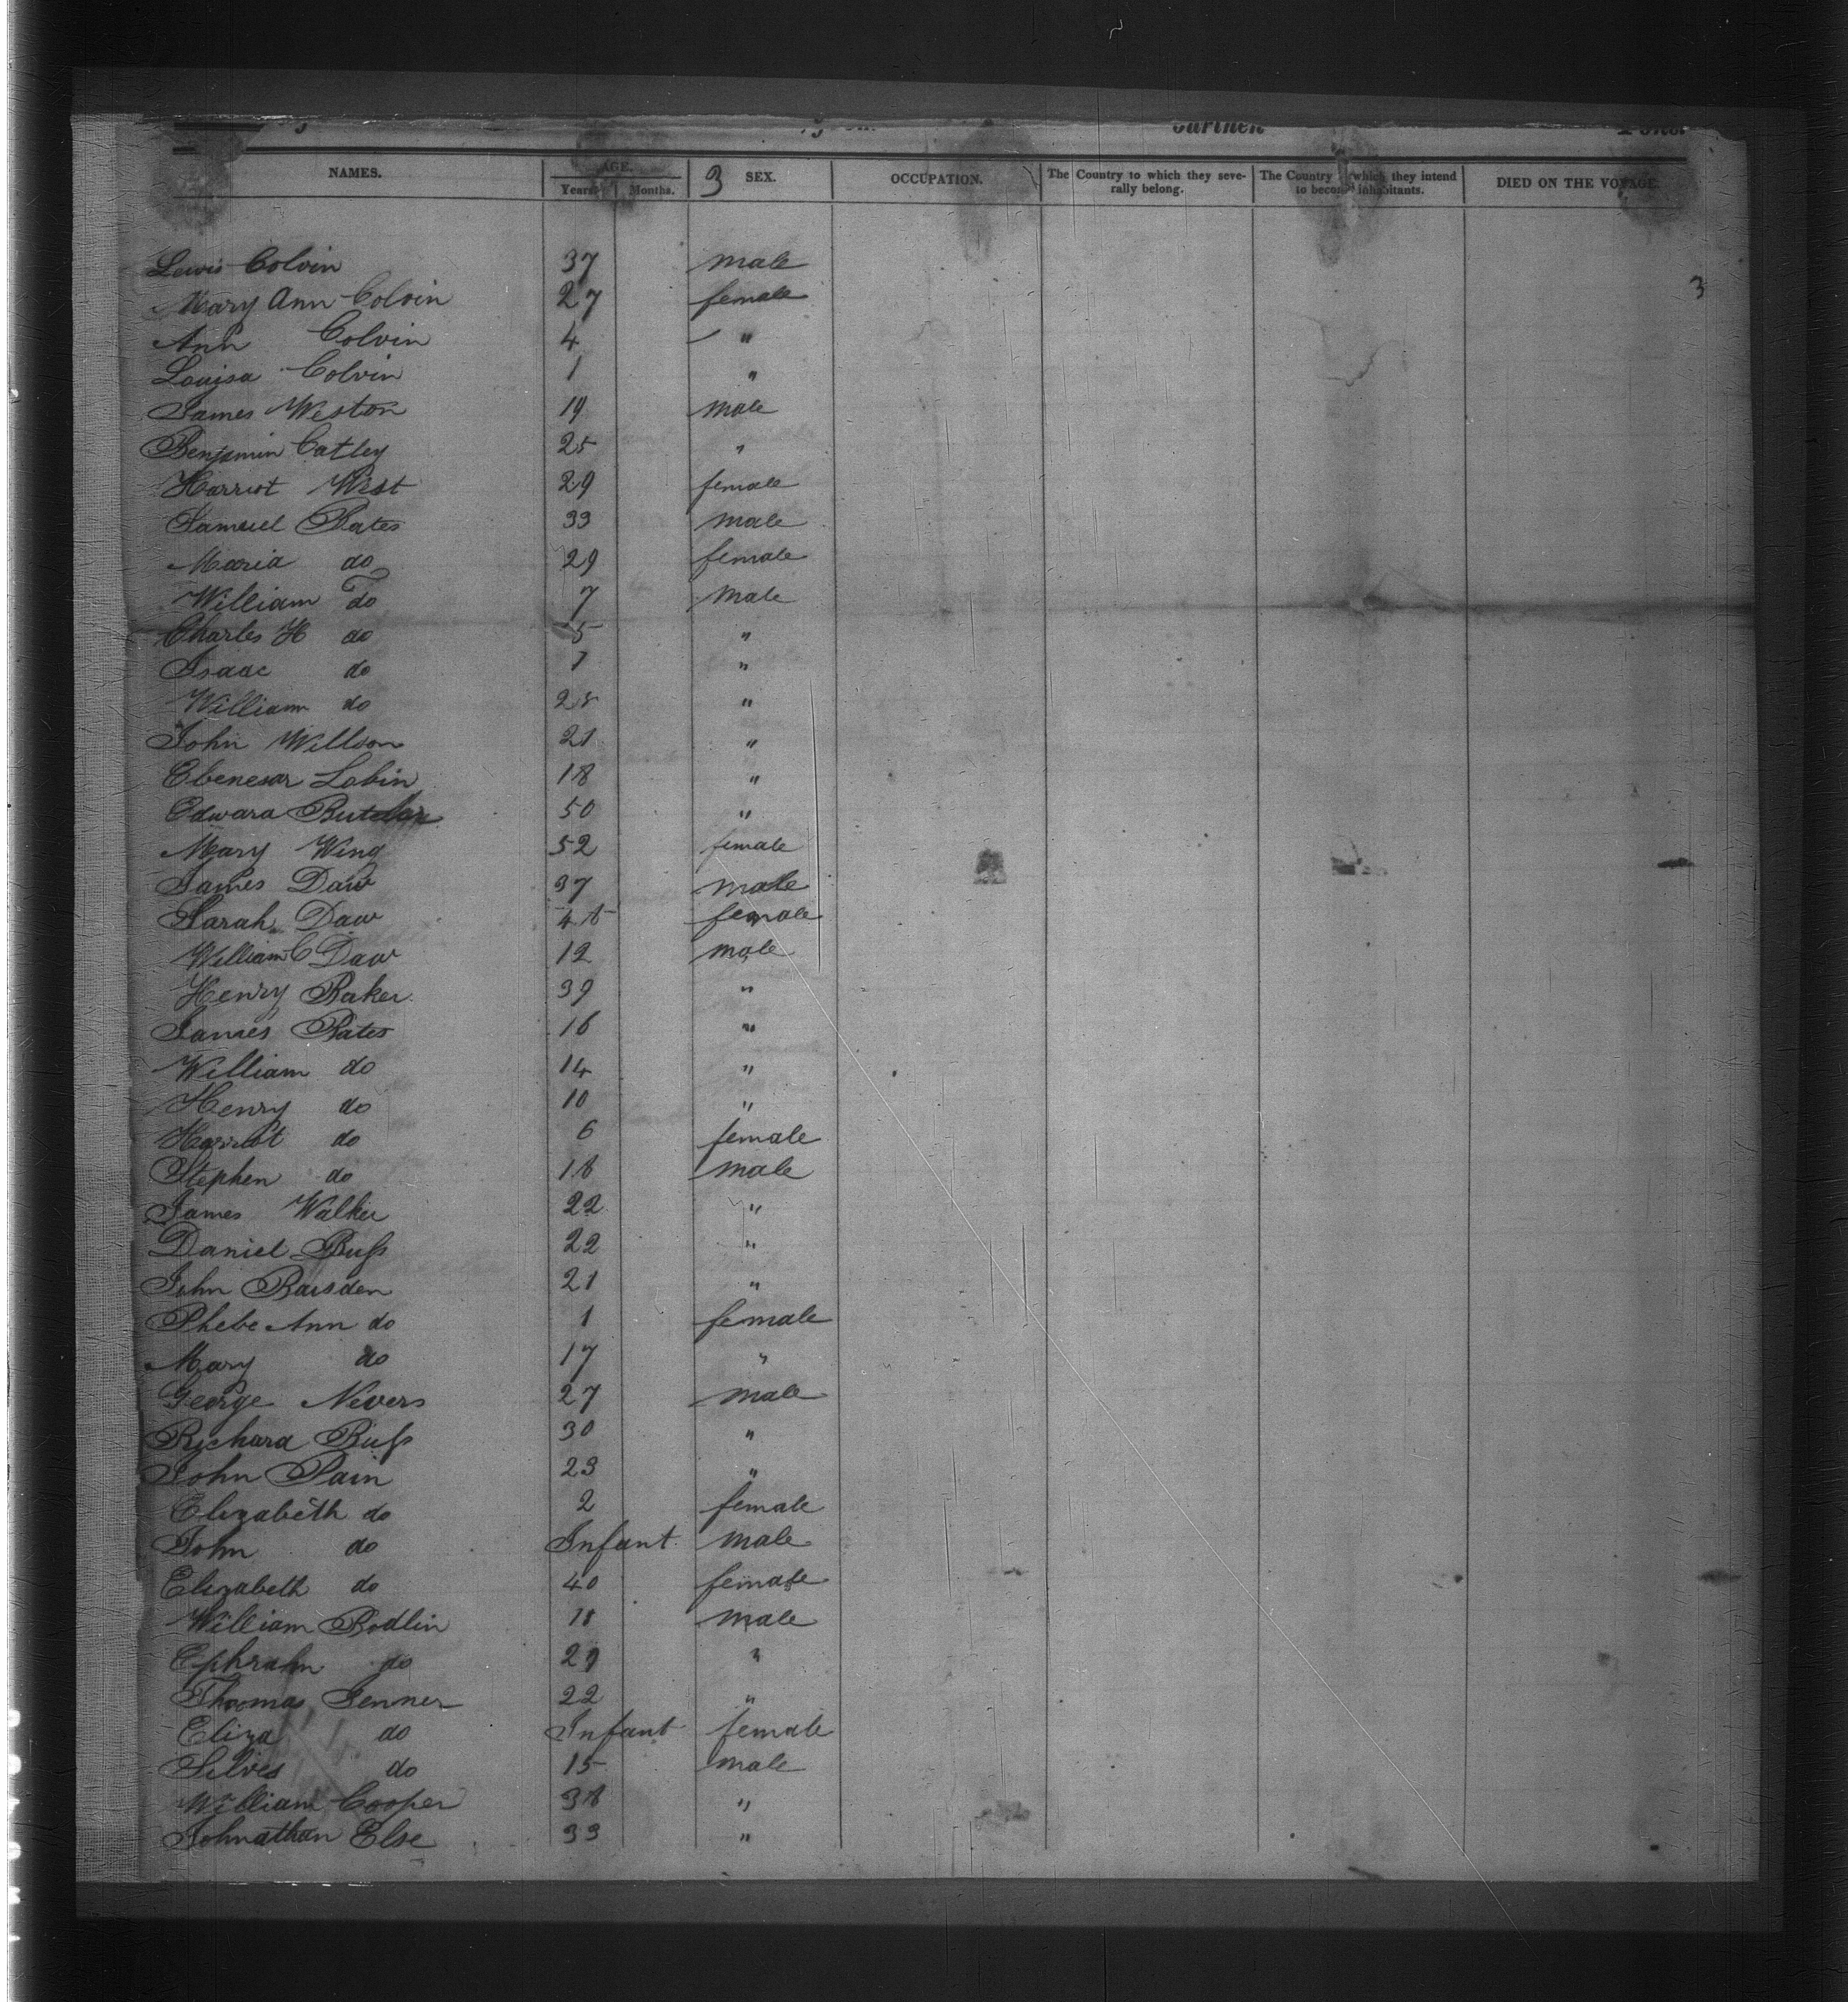 NAMES. AGE. 3 SEX. OCCUPATION. The Country to which they seve- The Country which they intend DIED ON THE VOYAGE.
Years. Months. rally belong. to become inhabitants.
Lewis Colvin 37 male
Mary Ann Colvin 27 female 3
Ann Colvin 4 "
Louisa Colvin 1 "
James Weston 19 male
Benjamin Catley 25 "
Harriot West 29 female
Samuel Bates 33 male
Maria do 29 female
William do 7 male
Charles H do 5 "
Isaac do "
William do "
John Willson 21 "
Ebenesar Lobin 18 "
Edward 50 "
Mary Wing 52 female
James Daw 37 male
Sarah Daw female
William C Daw 12 male
Henry Baker 39 "
James Bates 16 "
William do 14 "
Henry do 10 "
Harriot do 6 female
Stephen do 18 male
James Walker 22 "
Daniel Buss 22 "
John Baisden 21 "
Phebe Ann do 1 female
Mary do 17 "
George Nevers 27 male
Richard Buss 30 "
John Pain 23 "
Elizabeth do 2 female
John do Infant male
Elizabeth do 40 female
William Bodlin male
Ephraim do "
Thomas Jenner 22 "
Eliza do Infant female
Silves do 15 male
William Cooper 38 "
Johnathan Else 33 "